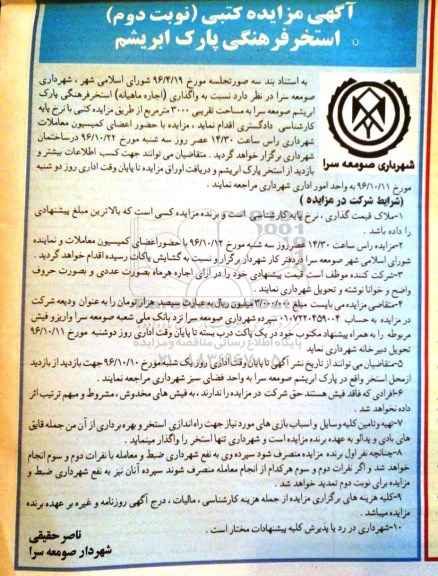 آگهی مزایده کتبی (نوبت دوم)
استخر فرهنگی پارک ابریشم
به استناد بند سه صورتجلسه مورخ ۹۶/۴/۱۹ شورای اسلامی شهر، شهرداری
صومعه سرا در نظر دارد نسبت به واگذاری (اجاره ماهیانه) استخر فرهنگی پارک
ابریشم صومعه سرا به مساحت تقریبی ۳۰۰۰ مترمربع از طریق مزایده کتبی با نرخ پایه
کارشناسی دادگستری اقدام نماید، مزایده با حضور اعضای کمیسیون معاملات
شهرداری راس ساعت ۱۴/۳۰ عصر روز سه شنبه مورخ ۹۶/۱۰/۲۲ در ساختمان
شهرداری برگزار خواهد گردید. متقاضیان می توانند جهت کسب اطلاعات بیشتر و
بازدید از استخر پارک ابریشم و دریافت اوراق مزایده تا پایان وقت اداری روز دو شنبه
شهرداری صومعه سرا
مورخ ۹۶/۱۰/۱۱ به واحد امور اداری شهرداری مراجعه نمایند.
(شرایط شرکت در مزایده)
۱-ملاک قیمت گذاری، نرخ پایه کارشناسی است و برنده مزایده کسی است که بالاترین مبلغ پیشنهادی
را داده باشد.
۲-مزایده راس ساعت ۱۴/۳۰ عصر روز سه شنبه مورخ ۹۶/۱۰/۱۲ با حضور اعضای کمیسیون معاملات و نماینده
شورای اسلامی شهر صومعه سرا در دفتر کار شهردار برگزار و نسبت به گشایش پاکات رسیده اقدام خواهد گردید.
۳-شرکت کننده موظف است قیمت پیشنهادی خود را در ازای اجاره هرماه بصورت عددی و بصورت حروف
واضح و خوانا نوشته و تحویل شهرداری نمایند.
۴-متقاضی مزایده می بایست مبلغ ۳/۰۰۰/۰۰۰ میلیون ریال به عبارت سیصد هزار تومان را به عنوان ودیعه شرکت
در مزایده به حساب ۰۱۰۷۲۲۰۴۵۹۰۰۴ سپرده شهرداری صومعه سرا نزد بانک ملی شعبه صومعه سرا واریز و فیش
مربوطه را به همراه پیشنهاد مکتوب خود در یک پاکت درب بسته تا پایان وقت اداری روز دوشنبه مورخ ۹۶/۱۰/۱۱
تحویل دبیرخانه شهرداری نماید
۵-متقاضیان می توانند از تاریخ نشر آگهی تا پایان وقت اداری روز یک شنبه مورخ ۹۶/۱۰/۱۰ جهت بازدید از بازدید
از محل استخر واقع در پارک ابریشم صومعه سرا به واحد فضای سبز شهرداری مراجعه نمایند.
۶-افرادی که فاقد فیش هستند حق شرکت در مزایده را ندارند، به فیش های مخدوش، مشروط و مبهم ترتیب اثر
داده نخواهد شد.
۷-تهیه و تامین کلیه وسایل و اسباب بازی های مورد نیاز جهت راه اندازی استخر و بهره برداری از آن من جمله قایق
های بادی و پدالو به عهده برنده مزایده است و شهرداری تنها استخر را واگذار مینماید.
۸-چنانچه نفر اول برنده مزایده منصرف شود سپرده وی به نفع شهرداری ضبط و معامله با نفرات دوم و سوم انجام
خواهد شد و اگر نفرات دوم و سوم هرکدام از انجام معامله منصرف شوند سپرده آنان نیز به نفع شهرداری ضبط و
مزایده برای نوبت دوم تمدید خواهد شد.
۹-کلیه هزینه های برگزاری مزایده از جمله هزینه کارشناسی، مالیات، درج آگهی روزنامه و غیره بر عهده برنده
مزایده میباشد.
۱۰-شهرداری در رد یا پذیرش کلیه پیشنهادات مختار است.
ناصر حقیقی
شهردار صومعه سرا